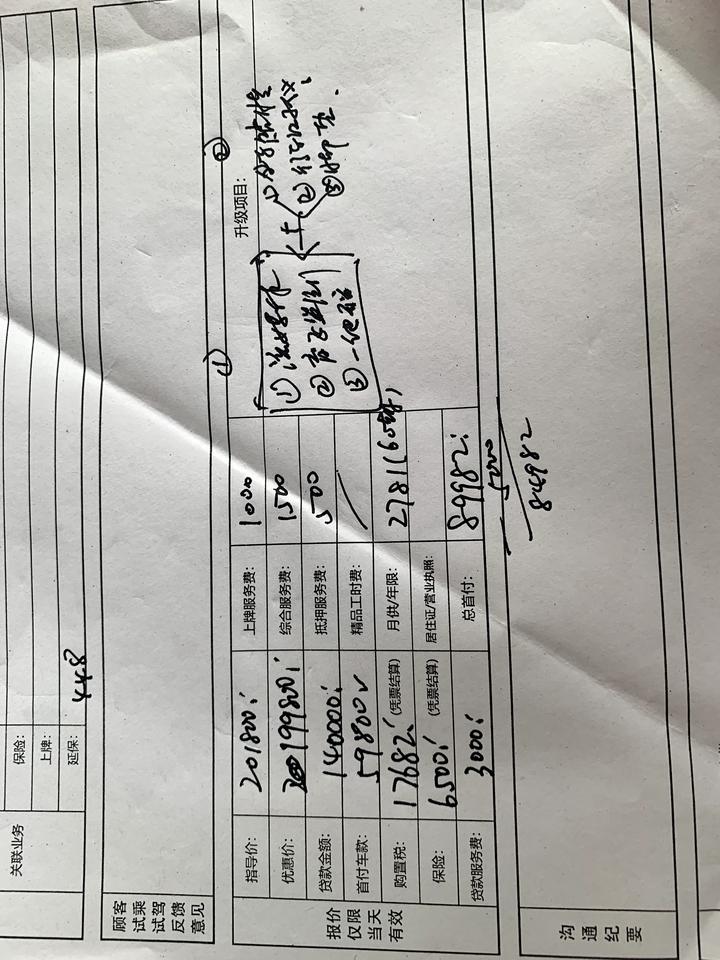 关联业务
保险:
上牌:
延保: 448
顾客
试乘
试驾
反馈
意见
报价
仅限
当天
有效
指导价: 201800 上牌服务费: 1000 升级项目:
优惠价: 199800 综合服务费: 1500
贷款金额: 140000 抵押服务费: 500
首付车款: 59800 精品工时费: /
购置税: 17682 (凭票结算) 月供/年限: 2781(60期)
保险: 6500 (凭票结算) 居住证/营业执照:
贷款服务费: 3000 总首付: 89982
5000
84982
① ②
①
②
③
①
② 行车记录仪
③ 脚垫
沟
通
纪
要